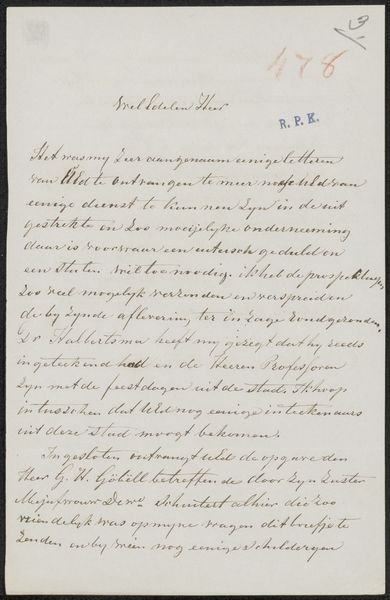 3/1
478
Wel Edelen Heer
R. P. K.
Het was my zeer aangenaam eenige letteren
van UEd te ontvangen te meer nog UEd van
eenige dienst te kunnen zyn in de uit
gestrekte en zoo mooijelyke onderneeming
daar is voorwaar een geduld en
een wil toe noodig. ik heb de prospektussen
zoo veel mogelyk verzonden en verspreid en
de by zynde aflevering ter inzage rond gezonden,
Dr Halbertsma heeft my gezegt dat hy reeds
ingeteekend had en de Heeren Professoren
zyn met de feestdagen uit de stad. ik hoop
intusschen dat UEd nog eenige inteekenaars
uit deze stad moogt bekomen.
Ingesloten ontvangt UEd de opgave den
Heer G. H. Göbell betreffende door zyn zuster
Mejufvrouw De Wed. Schuitert alhier die zoo
vriendelyk was op myne vragen dit briefje te
zenden en by wien nog eenige schilderyen